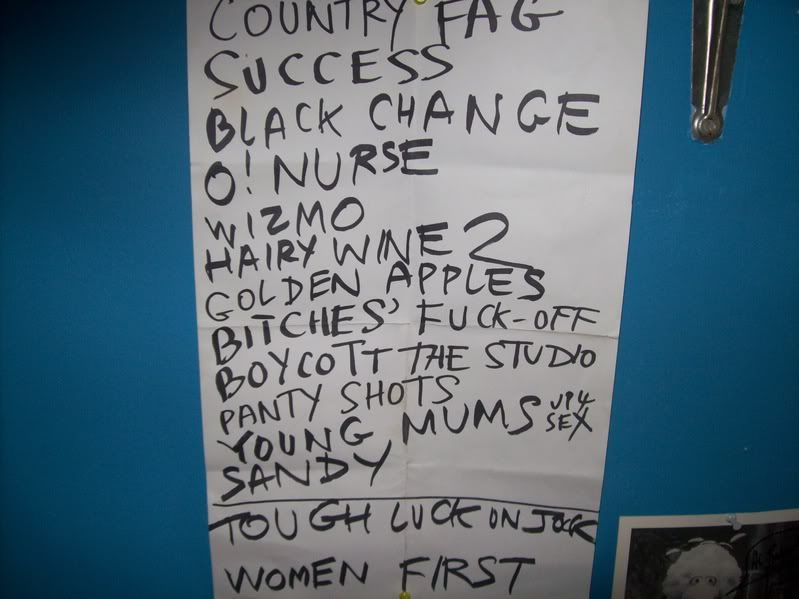 COUNTRY FAG
SUCCESS
BLACK CHANGE
O! NURSE
WIZMO
HAIRY WINE 2
GOLDEN APPLES
BITCHES' FUCK-OFF
BOYCOTT THE STUDIO
PANTY SHOTS
YOUNG MUMS UP 4 SEX
SANDY
TOUGH LUCK ON JOCK
WOMEN FIRST